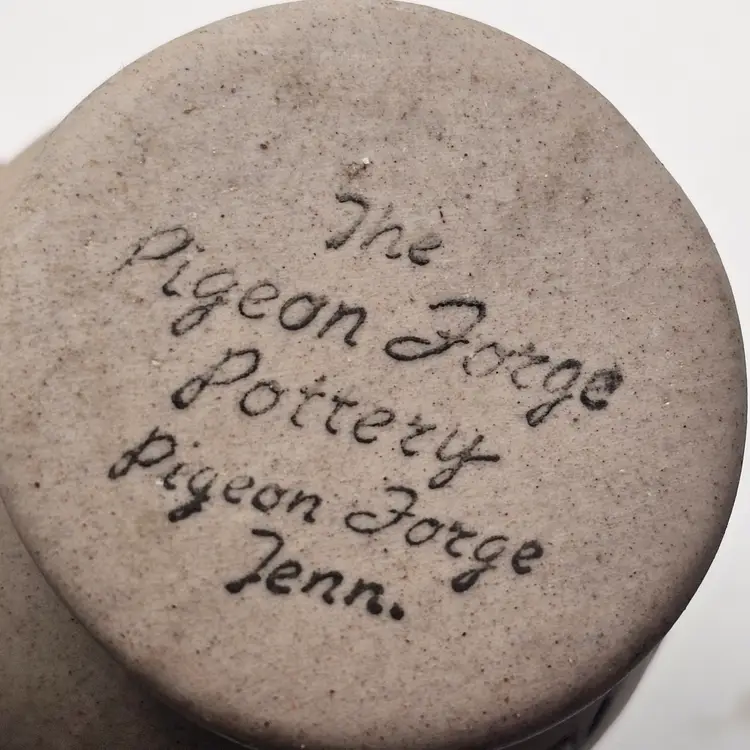 The
Pigeon Forge
Pottery
Pigeon Forge
Tenn.